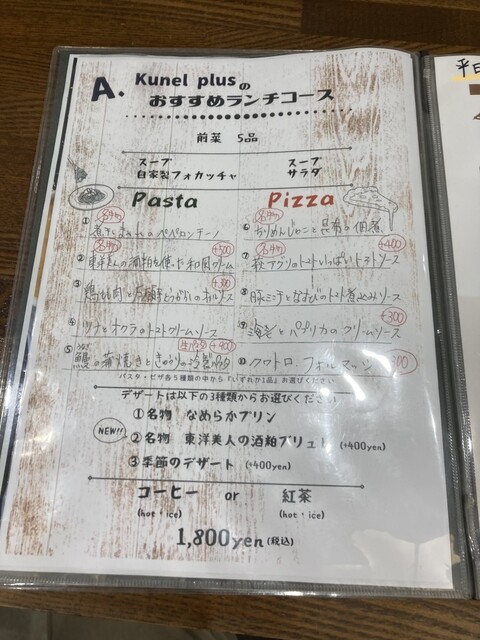 A. Kunel plusの
おすすめランチコース
前菜 5品
スープ
自家製フォカッチャ
スープ
サラダ
Pasta
名物
①
のペペロンチーノ
名物 +500
② 東洋美人の酒粕を使った和風クリーム
+300
③
のオイルソース
④ ツナとオクラのトマトクリームソース
生パスタ +400
⑤ 鰻の蒲焼きときゅうりの冷製
うなぎ
Pizza
名物
⑥ ちりめんじゃこと昆布の佃煮
名物 +400
⑦ 萩アグリのトマトいっぱいトマトソース
⑧ 豚ミンチとなすびのトマト煮込みソース
+300
⑨ 海老とパプリカのクリームソース
⑩ クワトロ・フォルマッジ
パスタ・ピザ各5種類の中から『いずれか1品』お選びください
デザートは以下の3種類からお選びください
①名物 なめらかプリン
NEW!!
②名物 東洋美人の酒粕ブリュレ (+400yen)
③季節のデザート (+400yen)
コーヒー or 紅茶
(hot・ice) (hot・ice)
1,800yen (税込)
平日